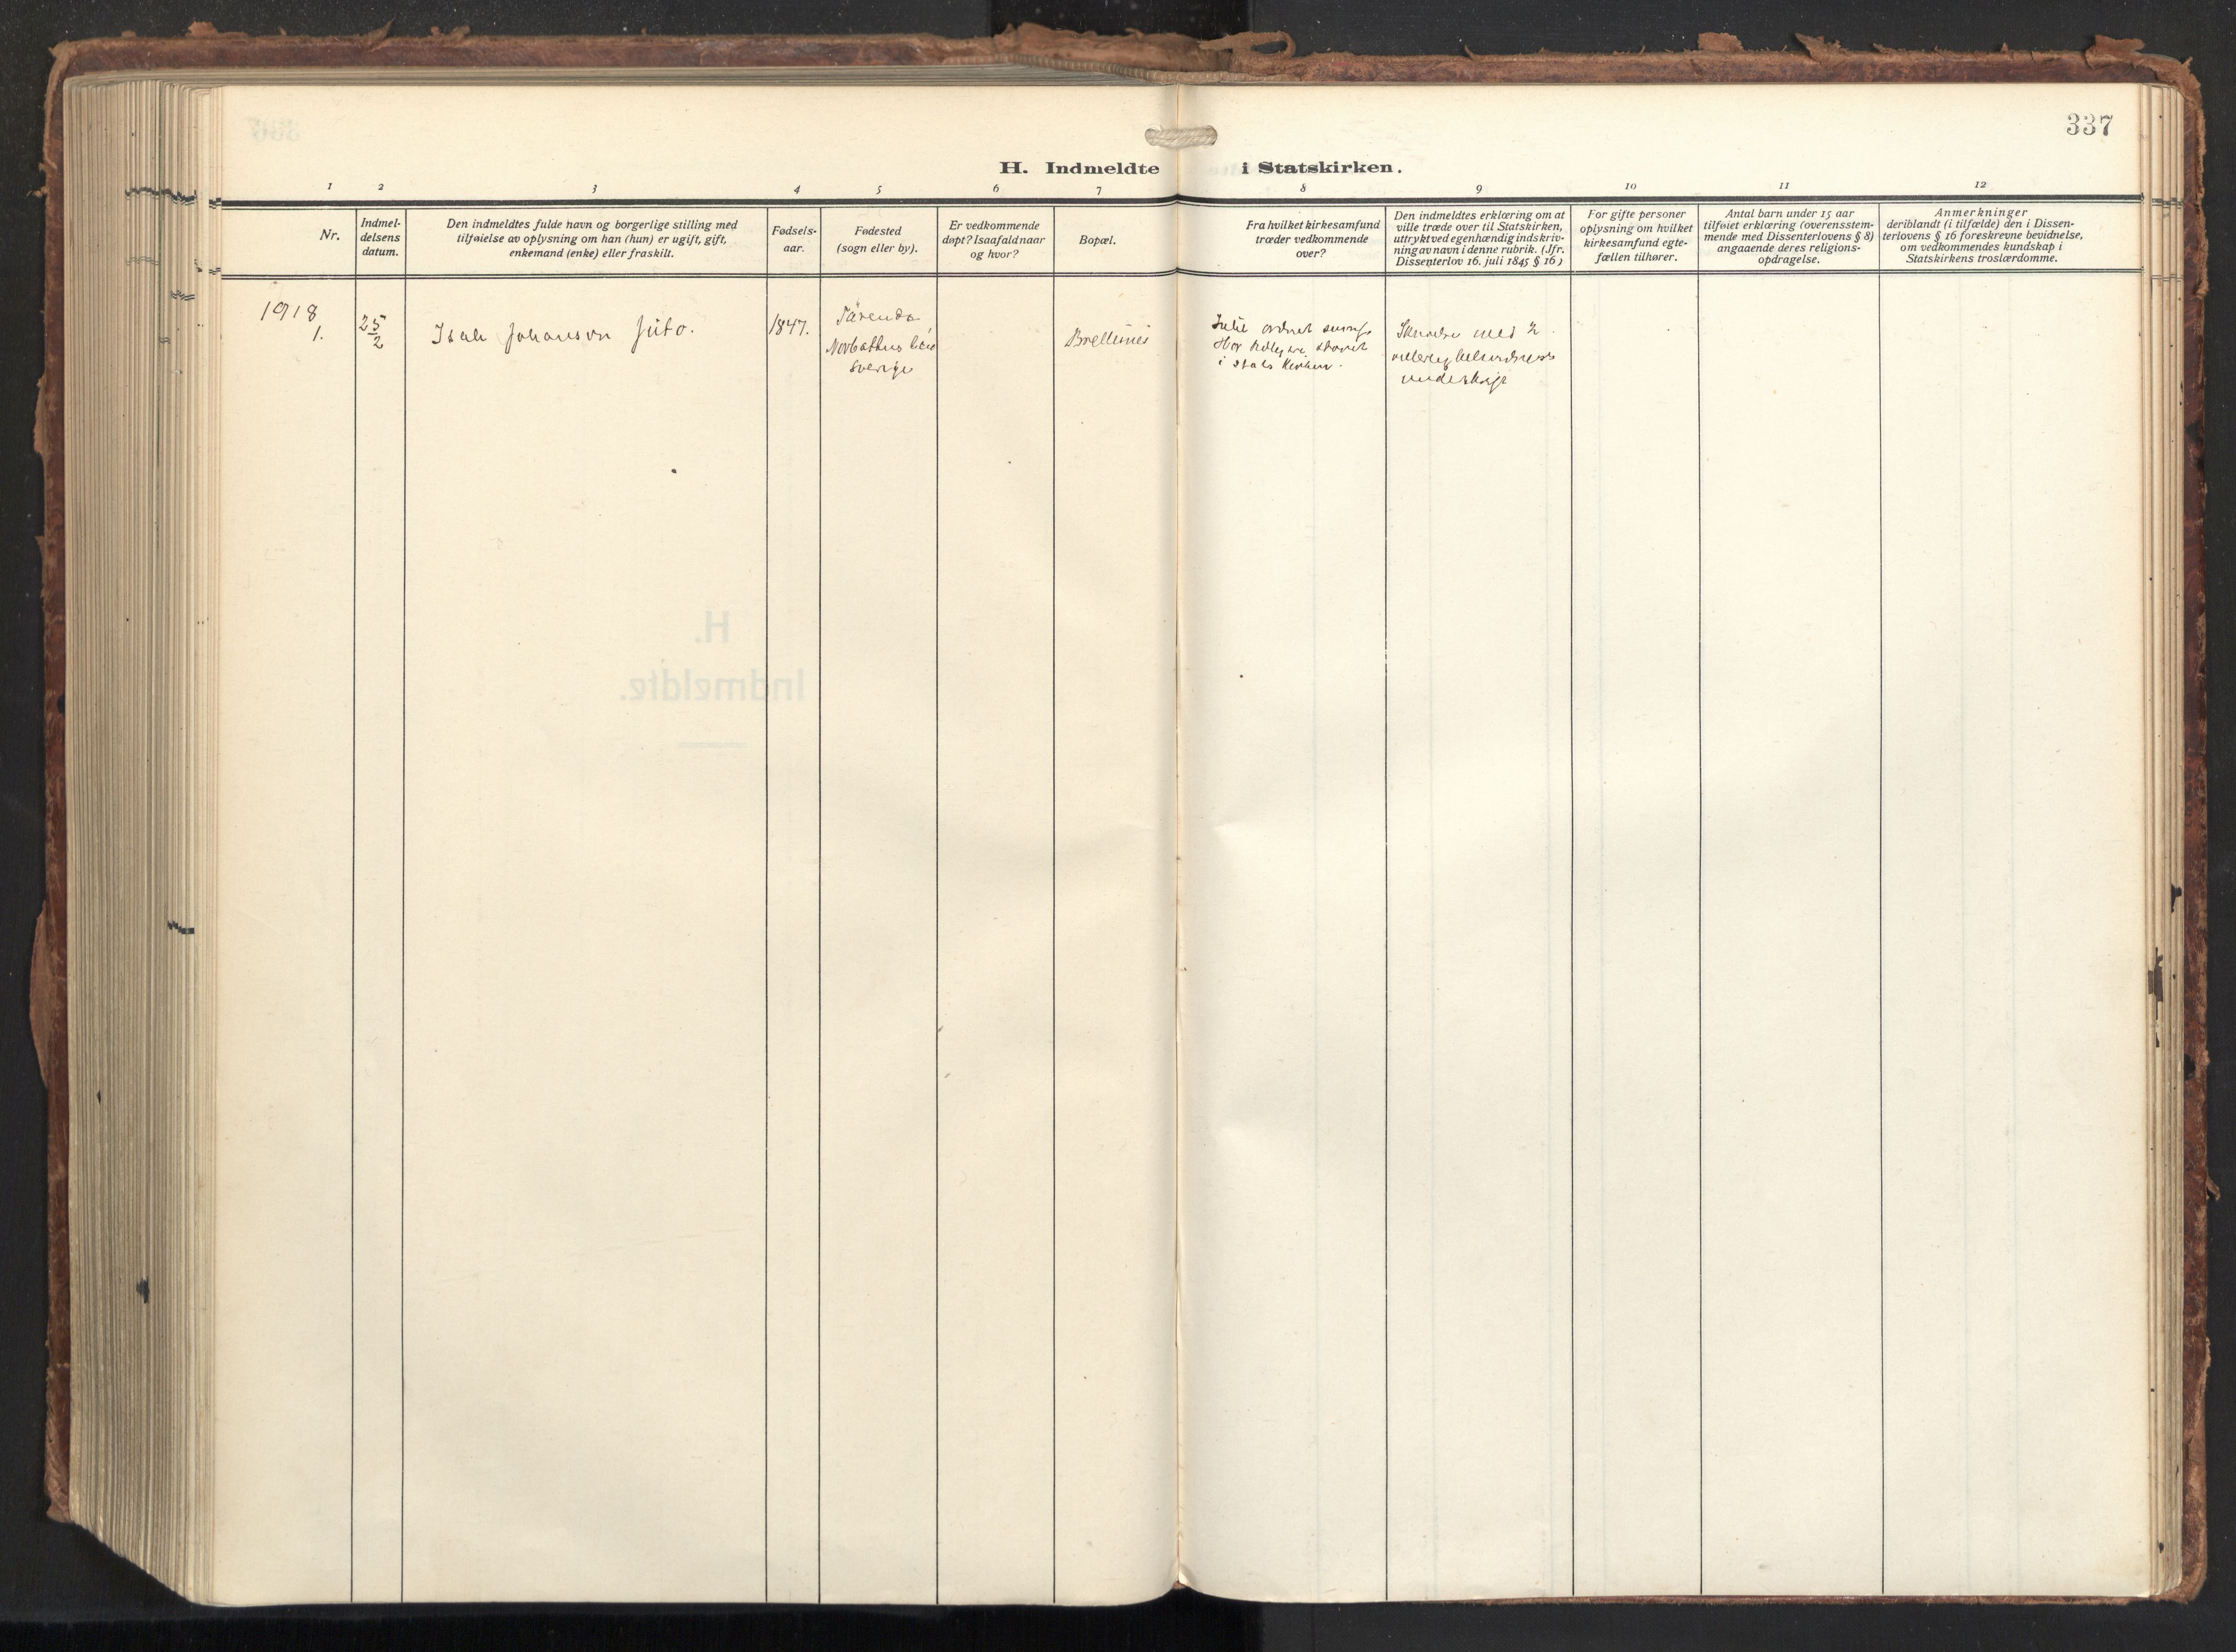 337
H. Indmeldte i Statskirken.
1 2 3 4 5 6 7 8 9 10 11 12
Nr.
Indmel-
delsens
datum.
Den indmeldtes fulde navn og borgerlige stilling med
tilføielse av oplysning om han (hun) er ugift, gift,
enkemand (enke) eller fraskilt.
Fødsels-
aar.
Fødested
(sogn eller by).
Er vedkommende
døpt? Isaafald naar
og hvor?
Bopæl.
Fra hvilket kirkesamfund
træder vedkommende
over?
Den indmeldtes erklæring om at
ville træde over til Statskirken,
uttrykt ved egenhændig indskriv-
ning av navn i denne rubrik. (Jfr.
Dissenterlov 16. juli 1845 § 16)
For gifte personer
oplysning om hvilket
kirkesamfund egte-
fællen tilhører.
Antal barn under 15 aar
tilføiet erklæring (overensstem-
mende med Dissenterlovens § 8)
angaaende deres religions-
opdragelse.
Anmerkninger
deriblandt (i tilfælde) den i Dissen-
terlovens § 16 foreskrevne bevidnelse,
om vedkommendes kundskap i
Statskirkens troslærdomme.
1918
1.
25/2
Isak Johanson Juto.
1847.
Tärendo
Norbottens län
Sverige
ordnet
Har tidligere staaet
i Stats Kirken.
med 2
underskrift
H.
Indmeldte.